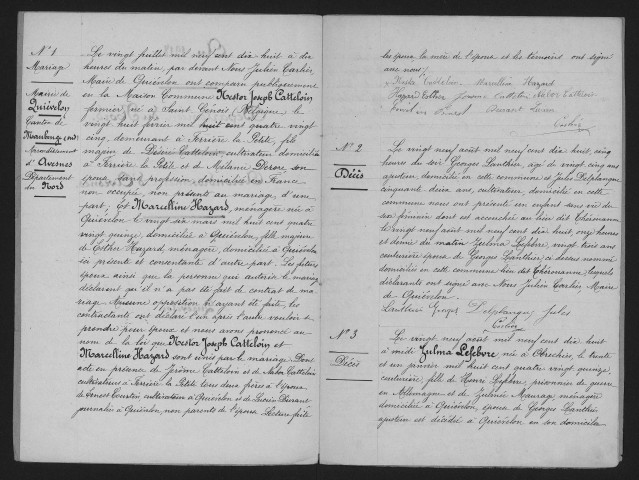 N° 1
Mariage
Mairie de
Quiévelon
Canton de
Maubeuge (Sud)
Arrondissement
d'Avesnes
Département
du Nord
Le vingt juillet mil neuf cent dix huit à dix
heures du matin, par devant Nous Julien Carlier,
Maire de Quiévelon ont comparu publiquement
en la Maison Commune Nestor Joseph Catteloin
fermier, né à Saint Genois, Belgique, le
vingt huit février mil huit cent quatre vingt
cinq, demeurant à Ferrière la Petite, fils
majeur de Désiré Catteloin, cultivateur domicilié
à Ferrière la Petite et de Mélanie Derore, son
épouse sans profession, domiciliée en France
non occupée, non présents au mariage d'une
part; Et Marcelline Hazard, ménagère née à
Quiévelon le vingt six mars mil huit cent quatre
vingt quinze, domiciliée à Quiévelon, fille majeure
de Esther Hazard, ménagère, domiciliée à Quiévelon
ici présente et consentante d'autre part. Les futurs
époux ainsi que la personne qui autorise le mariage
déclarent qu'il n'a pas été fait de contrat de ma-
riage. Aucune opposition n'ayant été faite, les
contractants ont déclaré l'un après l'autre vouloir se
prendre pour époux et nous avons prononcé au
nom de la loi que Nestor Joseph Catteloin et
Marcelline Hazard sont unis par le mariage. Dont
acte en présence de Jérôme Catteloin et de Nestor Catteloin
cultivateurs à Ferrière la Petite tous deux frères à l'époux
de Ernest Courtin cultivateur à Quiévelon et de Lucien Durant
journalier à Quiévelon, non parents de l'époux. Lecture faite
les époux la mère de l'épouse et les témoins ont signé
avec nous.
Nestor Catteloin Marcelline Hazard
Hazard Esther Jérome Catteloin
Durant Lucien
Carlier
N° 2
Décès
Le vingt neuf août mil neuf cent dix huit, cinq
heures du soir Georges Lanthier, âgé de vingt cinq ans
ajusteur, domicilié en cette commune et Jules Delplanque
cinquante deux ans, cultivateur, domicilié en cette
commune nous ont présenté un enfant sans vie du
sexe féminin dont est accouchée au lieu dit
le vingt neuf août mil neuf cent dix huit, onze heures
et demie du matin Zulma Lefebvre, vingt trois ans
couturière épouse de Georges Lanthier ci dessus nommé
domiciliée en cette commune lieu dit lesquels
déclarants ont signé avec Nous Julien Carlier, Maire
de Quiévelon.
Lanthier Georges Delplanque Jules
Carlier
N° 3
Décès
Le vingt neuf août mil neuf cent dix huit
à midi Zulma Lefebvre née à Obrechies, le trente
et un janvier mil huit cent quatre vingt quinze,
couturière, fille de Henri Lefebvre, prisonnier de guerre
en Allemagne et de Zulmée Mauvage ménagère
domiciliée à Quiévelon, épouse de Georges Lanthier
ajusteur est décédée à Quiévelon en son domicile